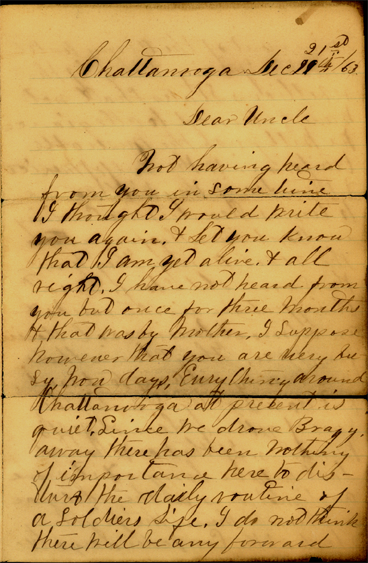 Chattanooga Dec 21st /63
Dear Uncle
Not having heard
from you in some time
I thought I would write
you again, & let you know
that I am yet alive, & all
right, I have not heard from
you but once for three months
& that was by Mother, I suppose
however that you are very bu-
sy, now days, Everything around
Chattanooga at present is
quiet, Since we drove Bragg
away there has been nothing
of importance here to dis-
turb the daily routine of
a Soldiers life, I do not think
there will be any forward